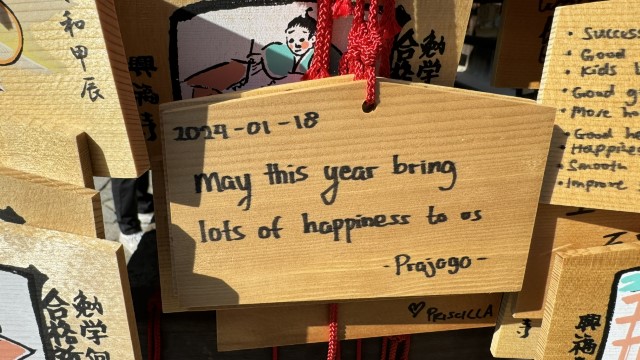 和甲辰
興福寺
合格
勉学
2024-01-18
May this year bring
lots of happiness to us
-Prajogo-
♡ PRISCILLA
• Success
• Good
• Kids
• Good
• More
• Good
Happine
• Smooth
• Improve
合格
勉学
寺
興福